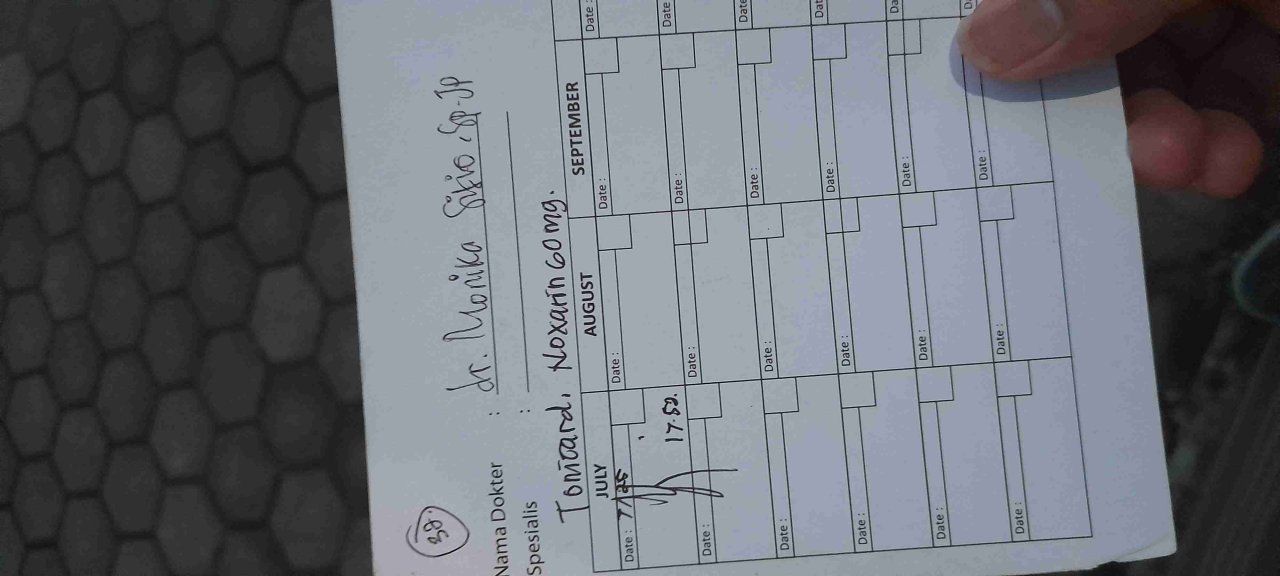 38.
Nama Dokter : dr. Monika Sp.JP
Spesialis :
Tomcard, Noxarin 60 mg.
JULY AUGUST SEPTEMBER
Date : 7/25 Date : Date : Date :
17.52.
Date : Date : Date : Date
Date : Date : Date : Date
Date : Date : Date : Dat
Date : Date : Date : Da
Date : Date : Date : D